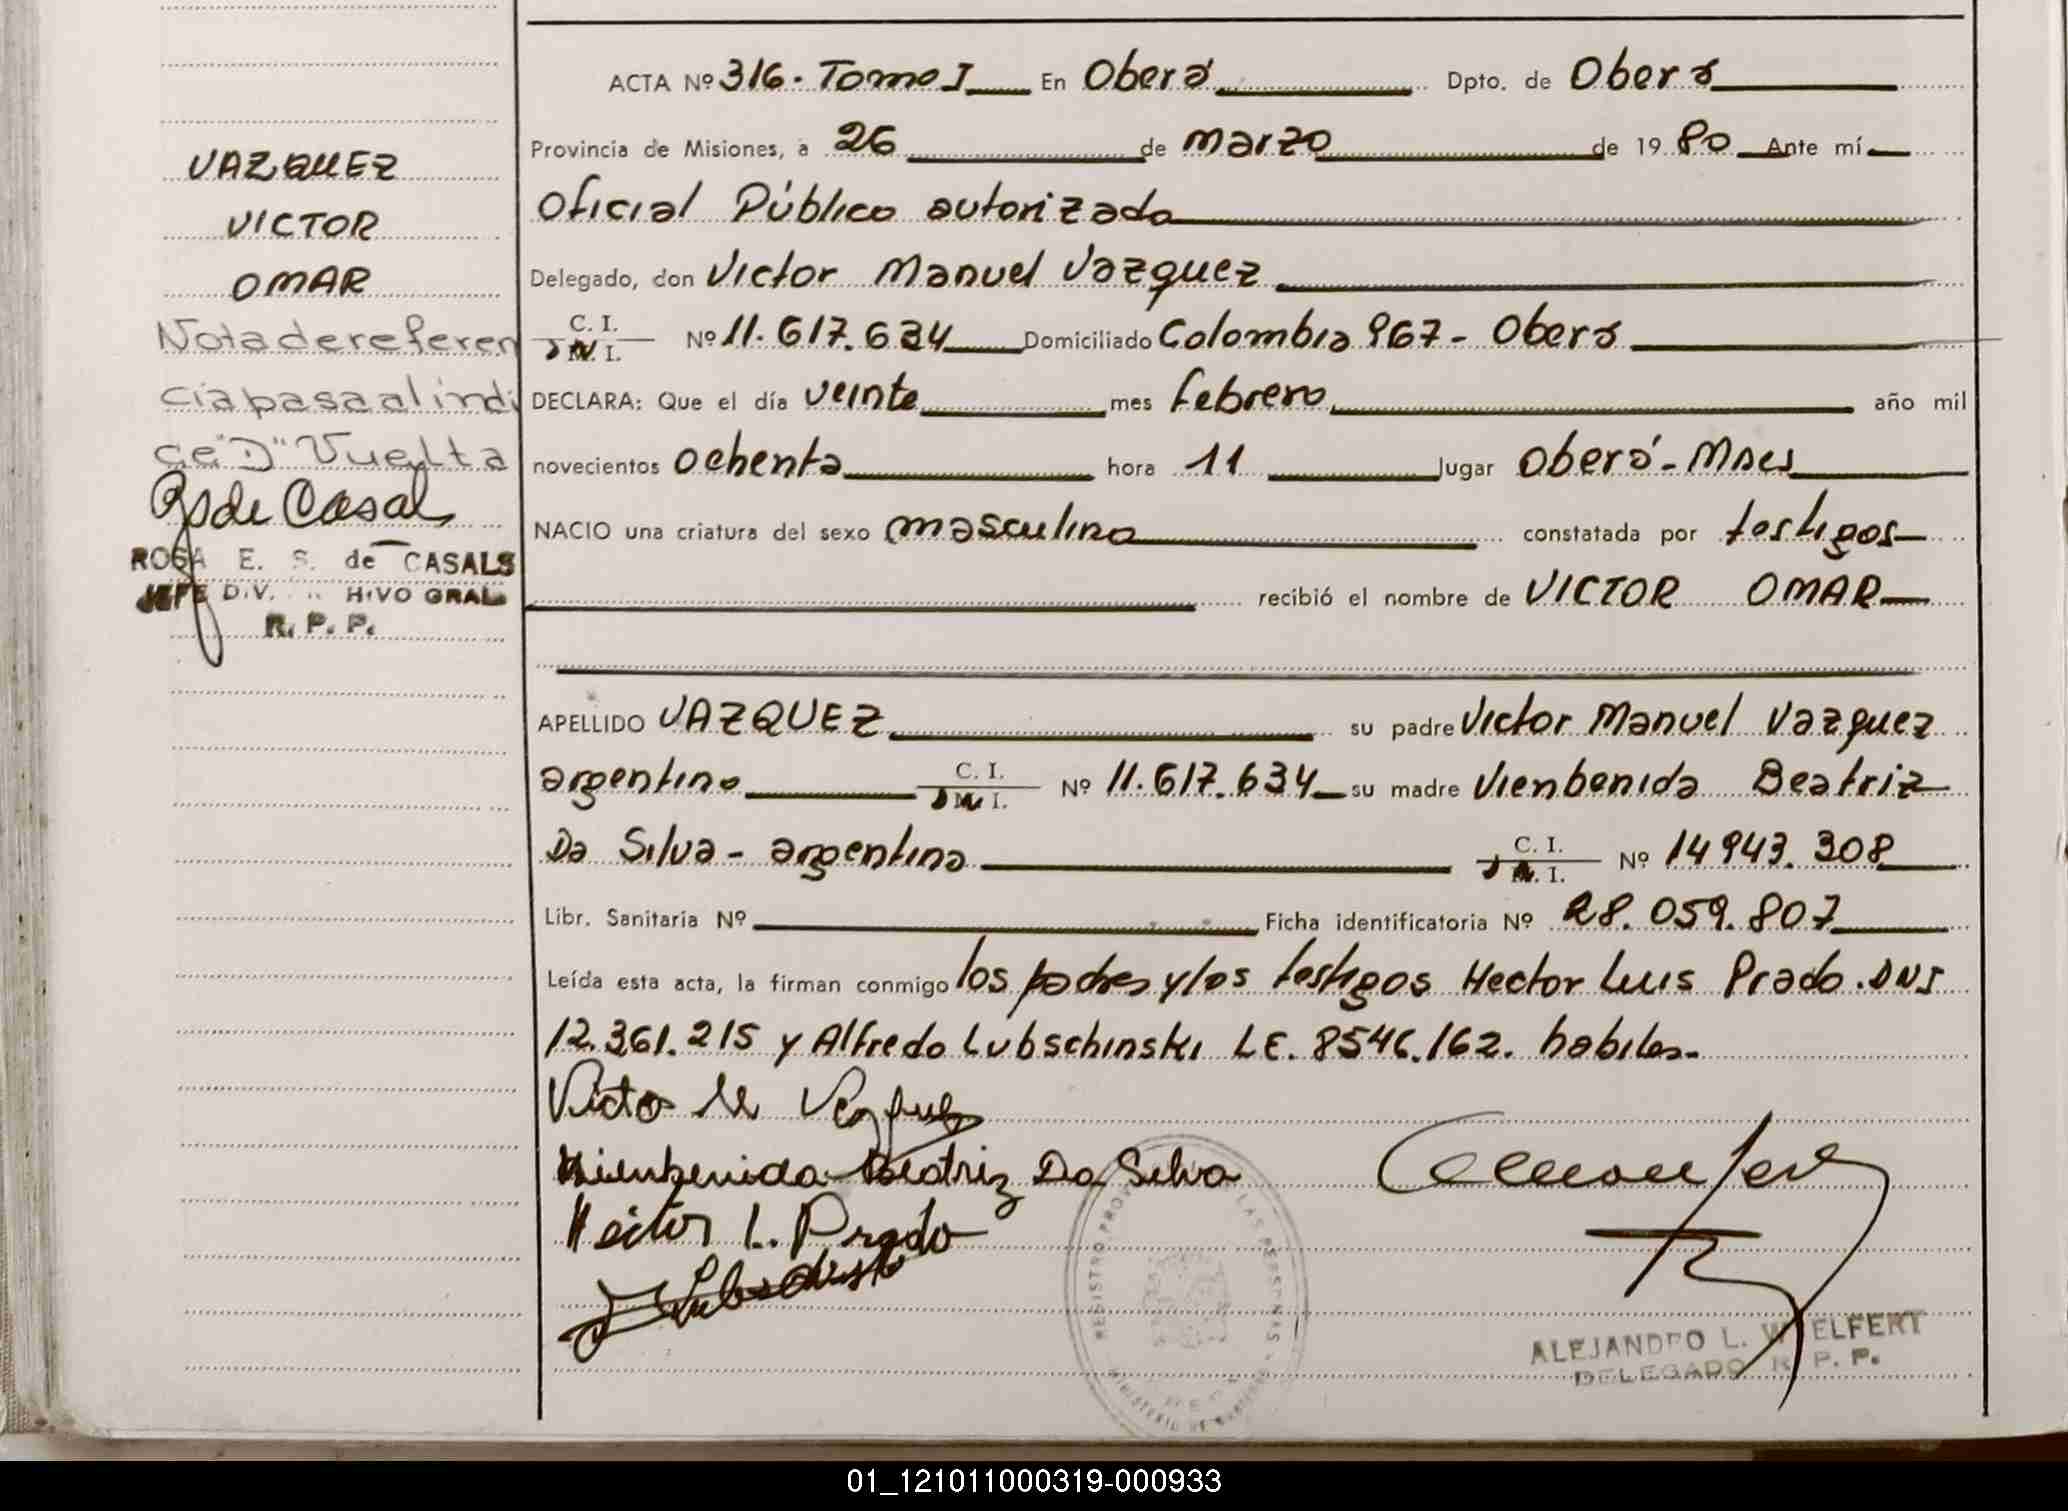 VAZQUEZ
VICTOR
OMAR
Nota de referen
cia pasa al indi
ce "D" Vuelta
ROSA E. S. de CASALS
JEFE DIV. HIVO GRAL
R. P. P.
ACTA Nº 316 - Tomo I En Oberá Dpto. de Oberá
Provincia de Misiones, a 26 de marzo de 1980 Ante mí
Oficial Público autorizado
Delegado, don Victor Manuel Vazquez
C. I.
D N I. Nº 11.617.634 Domiciliado Colombia 967 - Oberá
DECLARA: Que el día veinte mes febrero año mil
novecientos ochenta hora 11 lugar Oberá - Mnes
NACIO una criatura del sexo masculino constatada por testigos
recibió el nombre de VICTOR OMAR
APELLIDO VAZQUEZ su padre Victor Manuel Vazquez
argentino C. I. D N I. Nº 11.617.634 su madre Vienbenida Beatriz
Da Silva - argentina C. I. D N I. Nº 14 943. 308
Libr. Sanitaria Nº Ficha identificatoria Nº 28.059.807
Leída esta acta, la firman conmigo los padres y los testigos Hector Luis Prado. DNI
12.361.215 y Alfredo Lubschinski LE. 8546.162. habiles.-
Victor M Vazquez
Vienbenida Beatriz Da Silva
Hector L. Prado
REGISTRO PROV LAS PERSONAS
MINISTERIO DE GOBIERNO
ALEJANDRO L. WOELFERT
DELEGADO R. P. P.
01_121011000319-000933